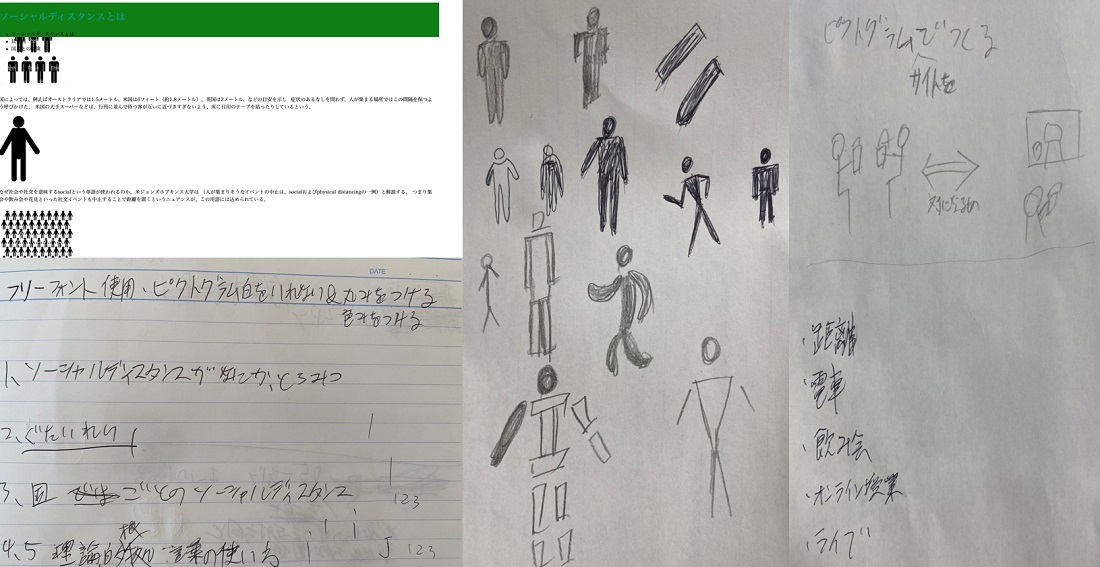 ソーシャルディスタンスとは
ソーシャルディスタンスとは
国によっては、例えばオーストラリアでは1.5メートル、米国は6フィート（約1.8メートル）、英国は2メートル、などの目安を示し 症状のあるなしを問わず、人が集まる場所ではこの間隔を保つよ
う呼びかけた。 米国の大手スーパーなどは、行列に並んで待つ客が互いに近づきすぎないよう、床に目印のテープを貼ったりしているという。
なぜ社会や社交を意味するsocialという単語が使われるのか。米ジョンズホプキンス大学は （人が集まりそうなイベントの中止は、socialおよびphysical distancingの一例）と解説する。 つまり集
会や飲み会や花見といった社交イベントも中止することで距離を置くというニュアンスが、この用語には込められている。
DATE
フリーフォント使用、ピクトグラム白をいれない& 丸みをつける
色みをつける
1、ソーシャルディスタンスがなにか、
2、ぐたいれい
3、国 ごとのソーシャルディスタンス
123
4、5 理論的 言葉の使い方
123
ピクトグラムでつくる
サイトを
対になるもの
・距離
・電車
・飲み会
・オンライン授業
・ライブ